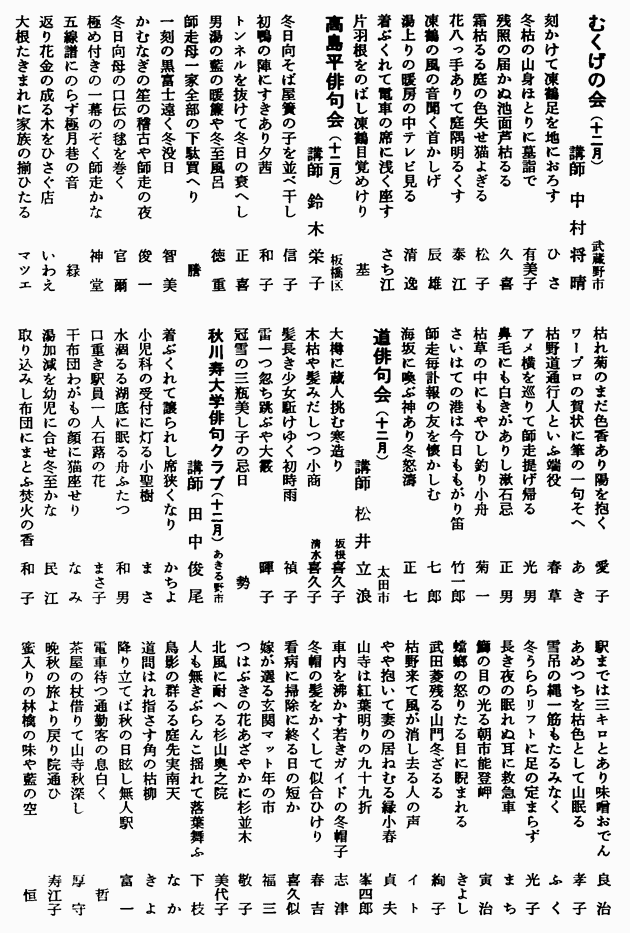 むくげの会（十二月） 武蔵野市
講師 中村将晴
刻かけて凍鶴足を地におろす ひさ
冬枯の山身ほとりに墓詣で 有美子
残照の届かぬ池面芦枯るる 久喜
霜枯るる庭の色失せ猫よぎる 松子
花八っ手ありて庭隅明るくす 泰江
凍鶴の風の音聞く首かしげ 辰雄
湯上りの暖房の中テレビ見る 清逸
着ぶくれて電車の席に浅く座す さち江
片羽根をのばし凍鶴目覚めけり 基
高島平俳句会（十二月） 板橋区
講師 鈴木栄子
冬日向そば屋簀の子を並べ干し 信子
初鴨の陣にすきあり夕茜 和子
トンネルを抜けて冬日の衰へし 正喜
男湯の藍の暖簾や冬至風呂 徳重
師走母一家全部の下駄買へり 勝
一刻の黒富士遠く冬没日 智美
かむなぎの笙の稽古や師走の夜 俊一
冬日向母の口伝の毬を巻く 官爾
極め付きの一幕のぞく師走かな 神堂
五線譜にのらず極月巷の音 緑
返り花金の成る木をひさぐ店 いわえ
大根たきまれに家族の揃ひたる マツエ
枯れ菊のまだ色香あり陽を抱く 愛子
ワープロの賀状に筆の一句そへ あき
枯野道通行人といふ端役 春草
アメ横を巡りて師走提げ帰る 光男
鼻毛にも白きがありし漱石忌 正男
枯草の中にもやひし釣り小舟 菊一
さいはての港は今日ももがり笛 竹一郎
師走毎訃報の友を懐かしむ 七郎
海坂に喚ぶ神あり冬怒濤 正七
道俳句会（十二月） 太田市
講師 松井立浪
大樽に蔵人挑む寒造り 坂根喜久子
木枯や髪みだしつつ小商 清水喜久子
髪長き少女駈けゆく初時雨 禎子
雷一つ忽ち跳ぶや大霰 暉子
冠雪の三瓶美し子の忌日 勢
秋川寿大学俳句クラブ（十二月） あきる野市
講師 田中俊尾
着ぶくれて譲られし席狭くなり かちよ
小児科の受付に灯る小聖樹 まさ
水涸るる湖底に眠る舟ふたつ 和男
口重き駅員一人石蕗の花 まさ子
干布団わがもの顔に猫座せり なみ
湯加減を幼児に合せ冬至かな 民江
取り込みし布団にまとふ焚火の香 和子
駅までは三キロとあり味噌おでん 良治
あめつちを枯色として山眠る 孝子
雪吊の縄一筋もたるみなく ふく
冬うららリフトに足の定まらず 光子
長き夜の眠れぬ耳に救急車 まち
鰤の目の光る朝市能登岬 寅治
蟷螂の怒りたる目に睨まれる きよし
武田菱残る山門冬ざるる 絢子
枯野来て風が消し去る人の声 イト
やや抱いて妻の居ねむる縁小春 貞夫
山寺は紅葉明りの九十九折 峯四郎
車内を沸かす若きガイドの冬帽子 志津
冬帽の髪をかくして似合ひけり 春吉
看病に掃除に終る日の短か 喜久似
嫁が選る玄関マット年の市 福三
つはぶきの花あざやかに杉並木 敬子
北風に耐へる杉山奥之院 美代子
人も無きぶらんこ揺れて落葉舞ふ 下枝
鳥影の群るる庭先実南天 なか
道問はれ指さす角の枯柳 きよ
降り立てば秋の日眩し無人駅 富一
電車待つ通勤客の息白く 哲
茶屋の杖借りて山寺秋深し 厚守
晩秋の旅より戻り院通ひ 寿江子
蜜入りの林檎の味や藍の空 恒